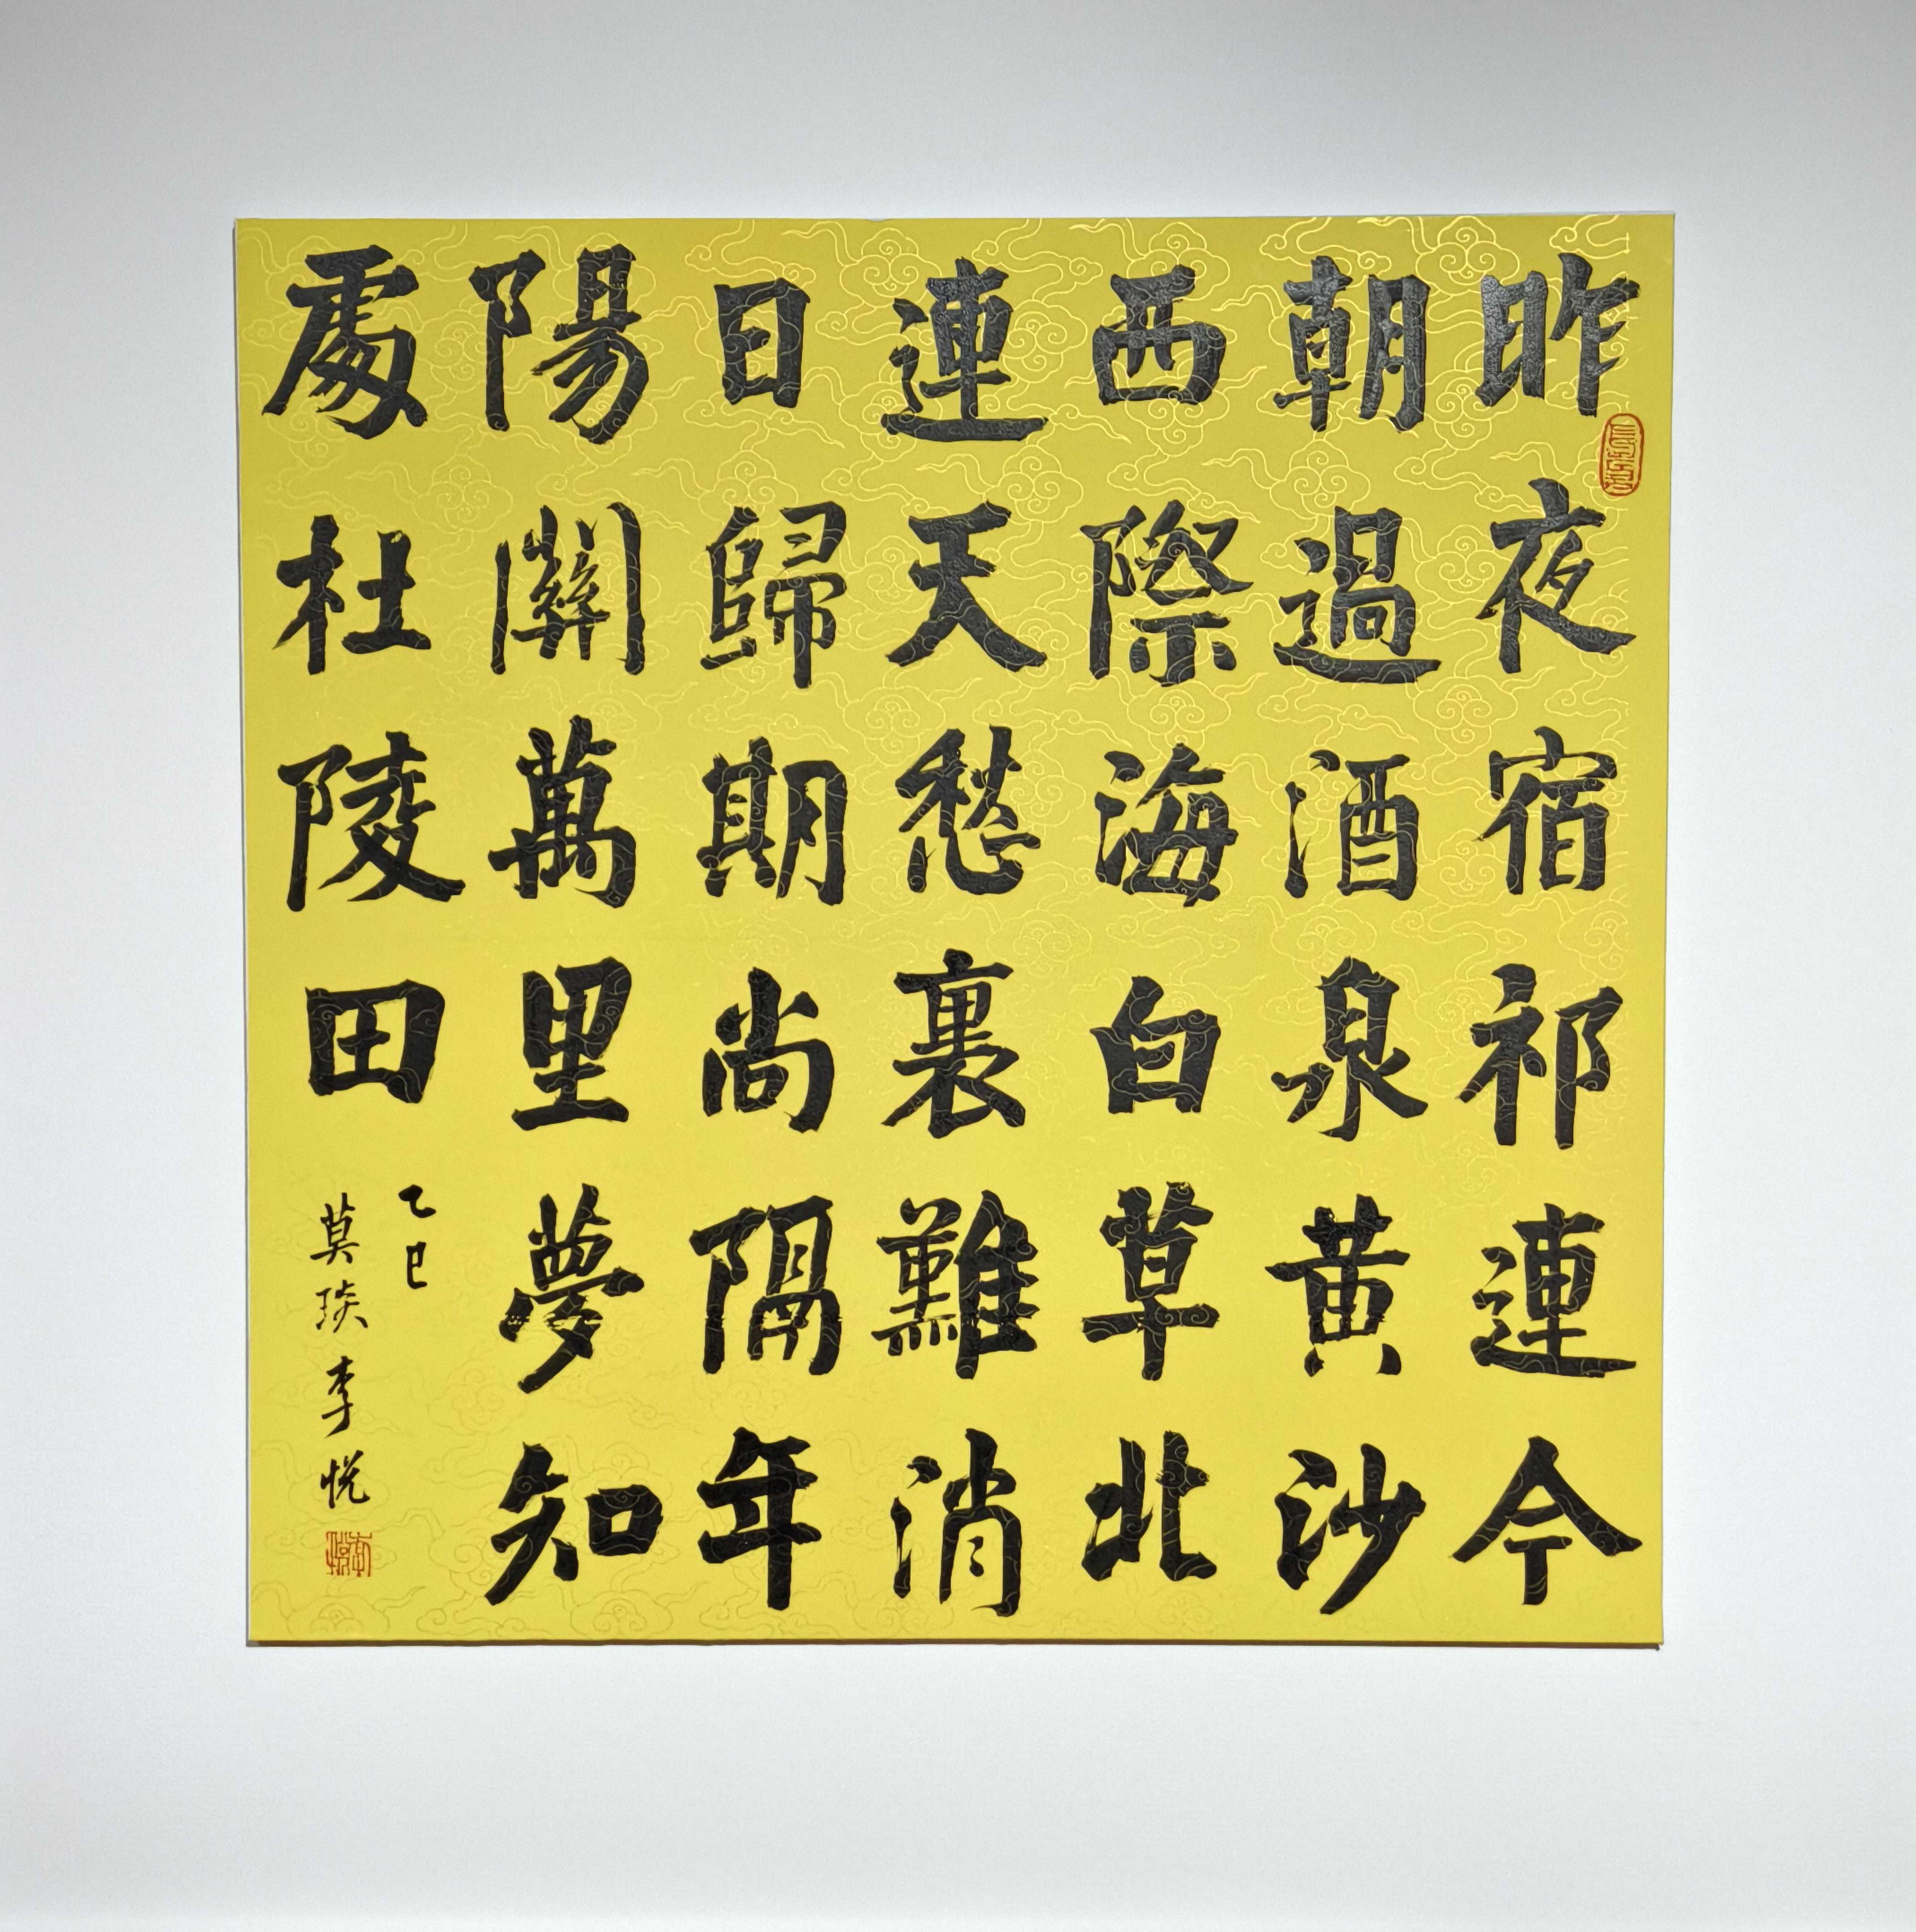 昨夜宿祁連今
朝過酒泉黄沙
西際海白草北
連天愁裏難消
日歸期尚隔年
陽關萬里夢知
處杜陵田
乙巳
莫琰李悦
李悦